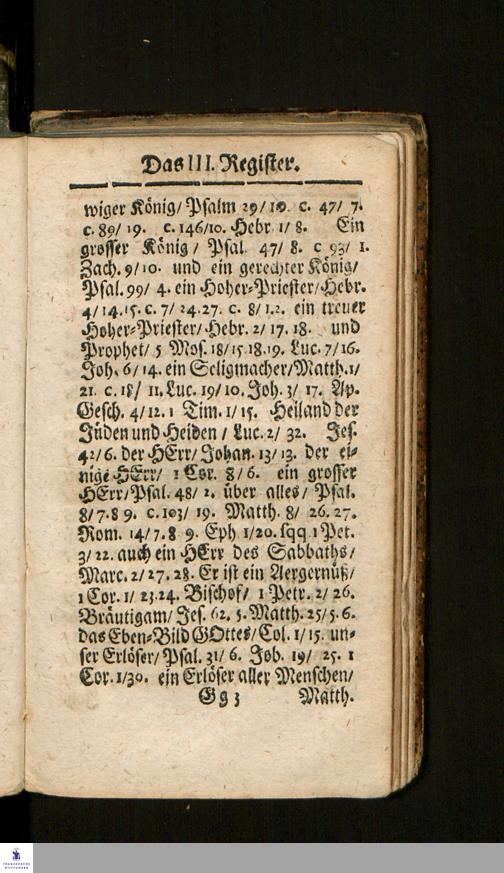 Das III. Register.
wiger König/ Psalm 29/10. c. 47/ 7.
c. 89/ 19. c. 146/10. Hebr. 1/ 8. Ein
grosser König / Psal. 47/ 8. c 93/ 1.
Zach. 9/10. und ein gerechter König/
Psal. 99/ 4. ein Hoher-Priester/ Hebr.
4/ 14.15. c. 7/ 24.27. c. 8/ 1.2. ein treuer
Hoher-Priester/ Hebr. 2/ 17. 18. und
Prophet/ 5 Mos. 18/ 15.18.19. Luc. 7/ 16.
Joh. 6/ 14. ein Seligmacher/ Matth. 1/
21. c. 18/ 11. Luc. 19/ 10. Joh. 3/ 17. Ap.
Gesch. 4/ 12. 1 Tim. 1/ 15. Heiland der
Jüden und Heiden / Luc. 2/ 32. Jes.
42/ 6. der HErr/ Johan. 13/ 13. der ei-
nige HErr/ 1 Cor. 8/ 6. ein grosser
HErr/ Psal. 48/ 2. über alles/ Psal.
8/ 7. 8 9. c. 103/ 19. Matth. 8/ 26. 27.
Rom. 14/ 7. 8 9. Eph 1/20. sqq 1 Pet.
3/ 22. auch ein HErr des Sabbaths/
Marc. 2/ 27. 28. Er ist ein Aergernüß/
1 Cor. 1/ 23.24. Bischof/ 1 Petr. 2/ 26.
Bräutigam/ Jes. 62. 5. Matth. 25/ 5. 6.
das Eben-Bild GOttes/ Col. 1/ 15. un-
ser Erlöser/ Psal. 31/ 6. Job. 19/ 25. 1
Cor. 1/30. ein Erlöser aller Menschen/
Gg 3 Matth.
FRANCKESCHE
STIFTUNGEN